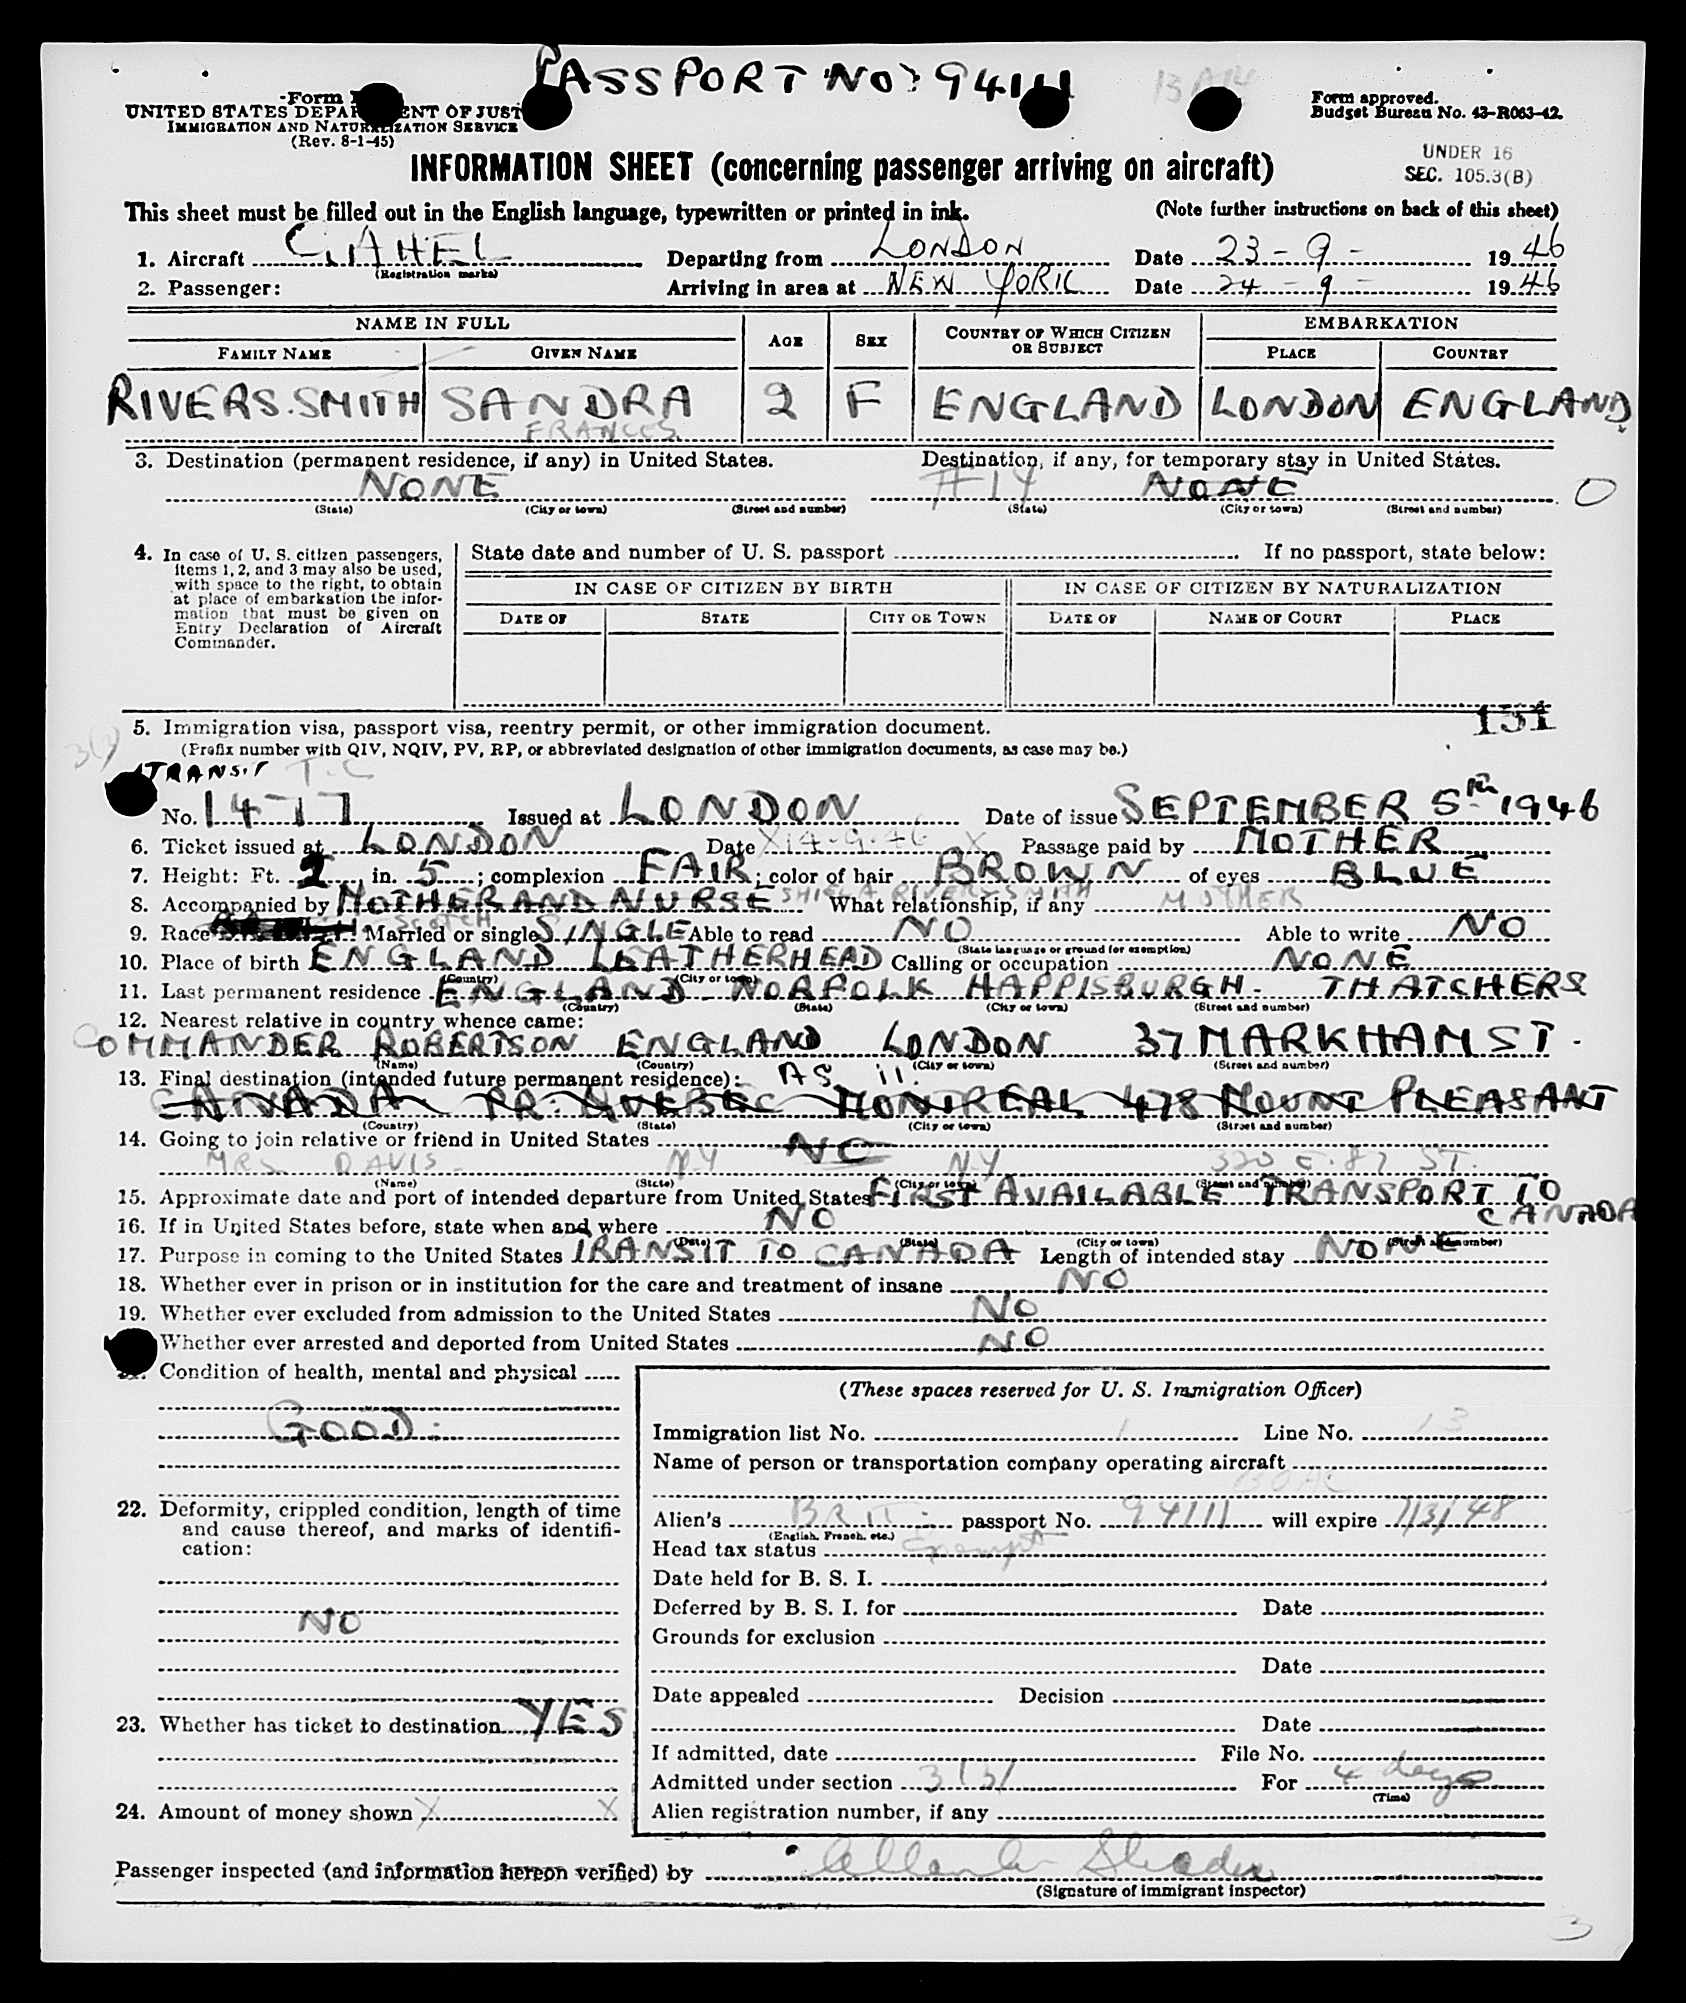 PASSPORT NO: 94111
Form
UNITED STATES DEPARTMENT OF JUST
IMMIGRATION AND NATURALIZATION SERVICE
(Rev. 8-1-45)
Form approved.
Budget Bureau No. 43-R063-42.
INFORMATION SHEET (concerning passenger arriving on aircraft)
UNDER 16
SEC. 105.3(B)
This sheet must be filled out in the English language, typewritten or printed in ink. (Note further instructions on back of this sheet)
1. Aircraft G.AHEL Departing from LONDON Date 23-9- 1946
(Registration marks)
2. Passenger: Arriving in area at NEW YORK Date 24-9- 1946
NAME IN FULL AGE SEX COUNTRY OF WHICH CITIZEN OR SUBJECT EMBARKATION
FAMILY NAME GIVEN NAME PLACE COUNTRY
RIVERS.SMITH SANDRA 2 F ENGLAND LONDON ENGLAND
FRANCES
3. Destination (permanent residence, if any) in United States. Destination, if any, for temporary stay in United States.
NONE #14 NONE 0
(State) (City or town) (Street and number) (State) (City or town) (Street and number)
4. In case of U. S. citizen passengers,
items 1, 2, and 3 may also be used,
with space to the right, to obtain
at place of embarkation the infor-
mation that must be given on
Entry Declaration of Aircraft
Commander.
State date and number of U. S. passport . If no passport, state below:
IN CASE OF CITIZEN BY BIRTH IN CASE OF CITIZEN BY NATURALIZATION
DATE OF STATE CITY OR TOWN DATE OF NAME OF COURT PLACE
151
5. Immigration visa, passport visa, reentry permit, or other immigration document.
(Prefix number with QIV, NQIV, PV, RP, or abbreviated designation of other immigration documents, as case may be.)
TRANSIT T.C
No. 1477 Issued at LONDON Date of issue SEPTEMBER 5th 1946
6. Ticket issued at LONDON Date X 14-9-46 X Passage paid by MOTHER
7. Height: Ft. 2 in. 5 ; complexion FAIR ; color of hair BROWN of eyes BLUE
8. Accompanied by MOTHER AND NURSE SHIELA RIVERS-SMITH What relationship, if any MOTHER
9. Race SCOTCH Married or single SINGLE Able to read NO Able to write NO
(State language or ground for exemption)
10. Place of birth ENGLAND LEATHERHEAD Calling or occupation NONE
(Country) (City or town)
11. Last permanent residence ENGLAND NORFOLK HAPPISBURGH. THATCHERS
(Country) (State) (City or town) (Street and number)
12. Nearest relative in country whence came:
COMMANDER ROBERTSON ENGLAND LONDON 37 MARKHAM ST.
(Name) (Country) (City or town) (Street and number)
13. Final destination (intended future permanent residence): AS 11.
CANADA. PR. QUEBEC MONTREAL 478 MOUNT PLEASANT
(Country) (State) (City or town) (Street and number)
14. Going to join relative or friend in United States NO
MRS DAVIS N.Y N.Y 320 E. 87 ST.
(Name) (State) (City or town) (Street and number)
15. Approximate date and port of intended departure from United States FIRST AVAILABLE TRANSPORT TO
CANADA
16. If in United States before, state when and where NO
(Date) (State) (City or town) (Street and number)
17. Purpose in coming to the United States TRANSIT TO CANADA Length of intended stay NONE
18. Whether ever in prison or in institution for the care and treatment of insane NO
19. Whether ever excluded from admission to the United States NO
Whether ever arrested and deported from United States NO
21. Condition of health, mental and physical
GOOD.
22. Deformity, crippled condition, length of time
and cause thereof, and marks of identifi-
cation:
NO
23. Whether has ticket to destination YES
24. Amount of money shown X X
(These spaces reserved for U. S. Immigration Officer)
Immigration list No. 1 Line No. 13
Name of person or transportation company operating aircraft
BOAC
Alien's BRIT. passport No. 94111 will expire 1/3/48
(English, French, etc.)
Head tax status Exempt
Date held for B. S. I.
Deferred by B. S. I. for Date
Grounds for exclusion
Date
Date appealed Decision
Date
If admitted, date File No.
Admitted under section 3(3) For 4 days
(Time)
Alien registration number, if any
Passenger inspected (and information hereon verified) by
(Signature of immigrant inspector)
3